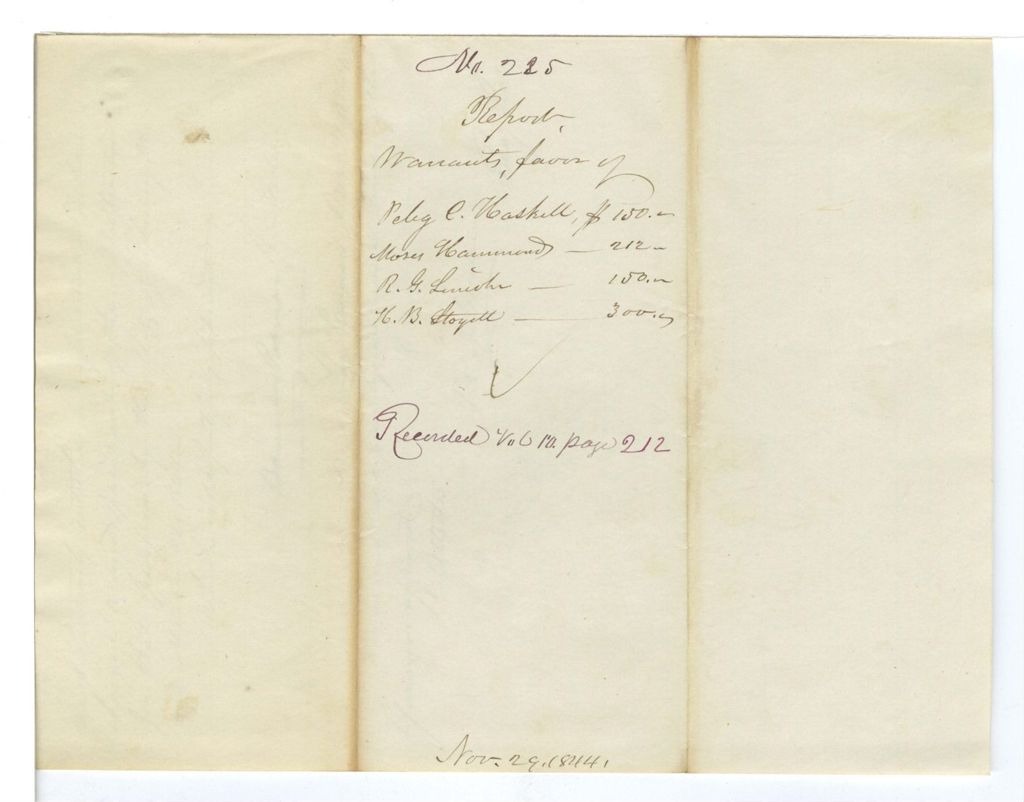 No. 225
Report,
Warrants, favor of
Peleg C. Haskell, $150.–
Moses Hammond — 212–
R. G. Lincoln — 150.–
H. B. Stoyell — 300.–
Recorded Vol 10. page 212
Nov. 29. 1844.